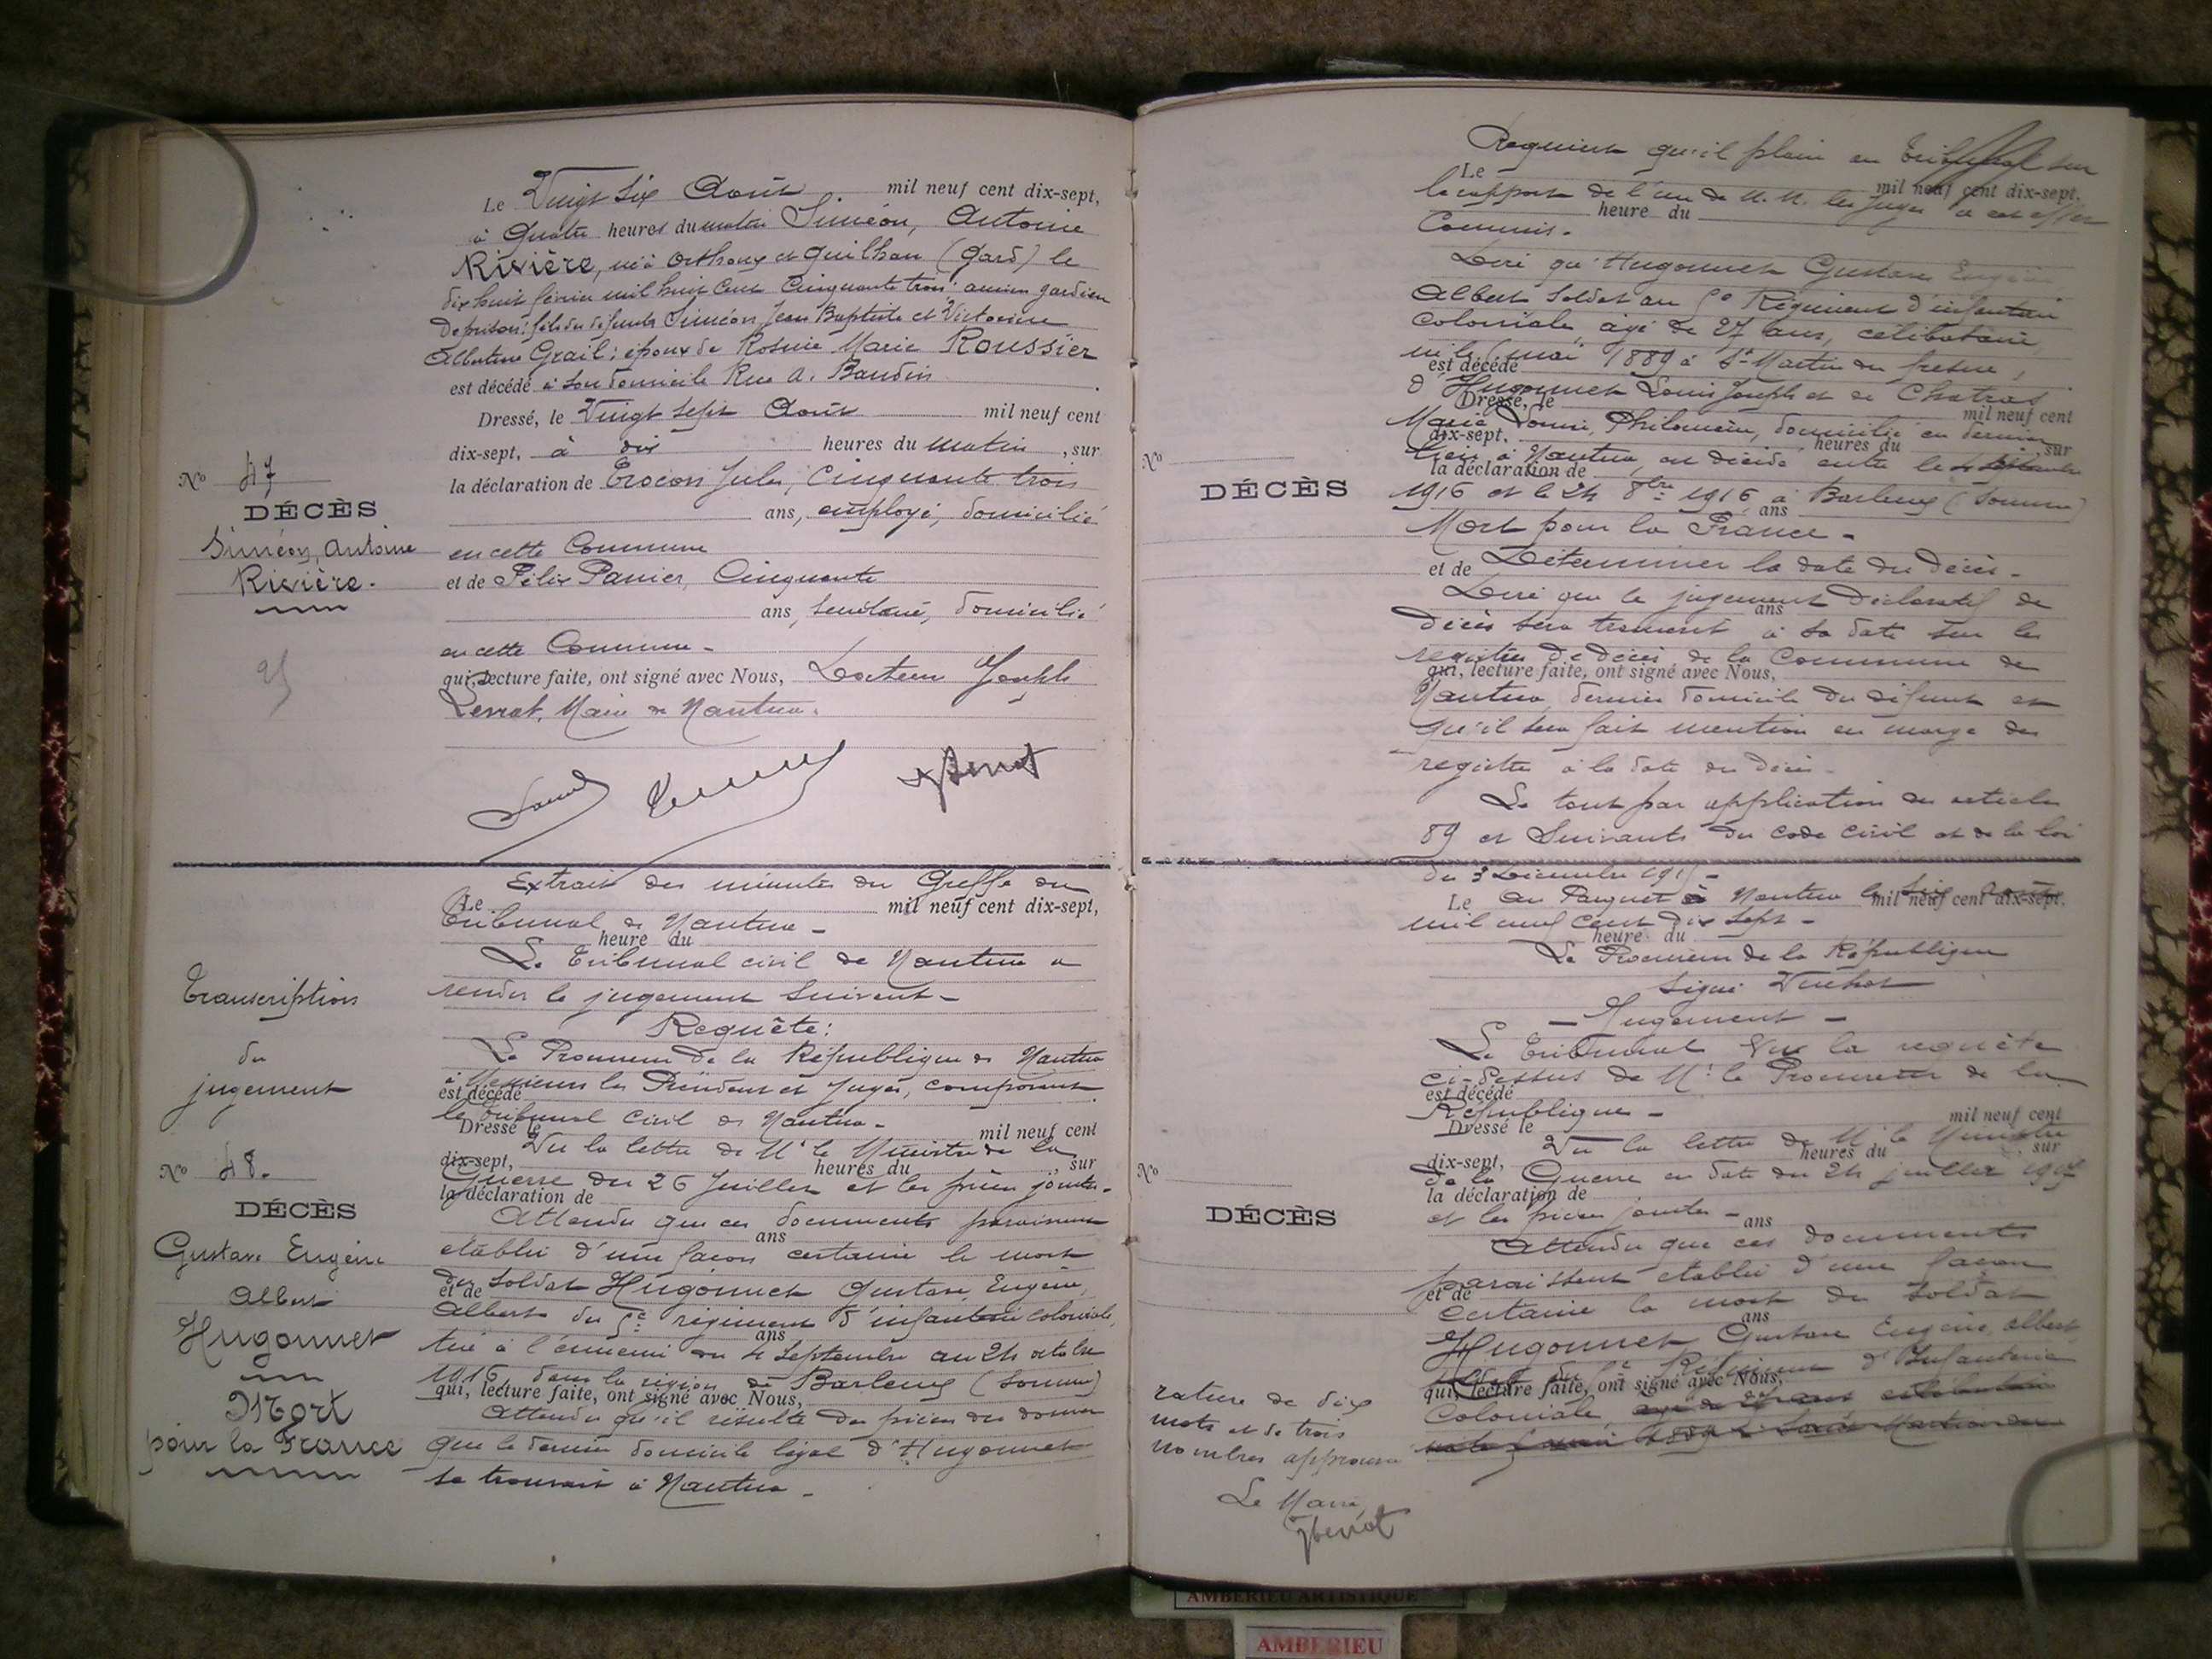 Le Vingt Six Août mil neuf cent dix-sept,
à Quatre heures du matin Siméon, Antoine
Rivière, né à Orthoux et Quilhan (Gard) le
dix huit février mil huit cent Cinquante trois, ancien gardien
de prison; fils des défunts Siméon Jean Baptiste et Victorine
Albertine Grail; époux de Rosine Marie Roussier
est décédé à son domicile Rue A. Baudin
Dressé, le Vingt Sept Août mil neuf cent
dix-sept, à dix heures du matin, sur
la déclaration de Crocon Jules, Cinquante trois
ans, employé, domicilié
en cette Commune
et de Félix Panier, Cinquante
ans, domicilié
en cette Commune -
qui, lecture faite, ont signé avec Nous, Docteur Joseph
Levrat, Maire de Nantua.
No 47
DÉCÈS
Siméon, Antoine
Rivière.
Extrait des minutes du Greffe du
Le mil neuf cent dix-sept,
Tribunal de Nantua -
heure du
Le Tribunal civil de Nantua a
rendu le jugement suivant -
Requête:
Le Procureur de la République de Nantua
à Messieurs les Président et Juges, composant
est décédé
le Tribunal Civil de Nantua -
Dressé le mil neuf cent
Vu la lettre de Mr le Ministre de la
dix-sept, heures du , sur
Guerre du 26 Juillet et les pièces jointes -
la déclaration de
Attendu que ces documents paraissent
ans
établir d'une façon certaine la mort
du Soldat Hugonnet Gustave, Eugène,
et de
Albert du 5e régiment d'infanterie coloniale,
ans
tué à l'ennemi du 4 Septembre au 24 octobre
1916 dans la région de Barleux (Somme)
qui, lecture faite, ont signé avec Nous,
Attendu qu'il résulte des pièces du dossier
que le dernier domicile légal d'Hugonnet
se trouvait à Nantua -
Transcription
du
jugement
No 48.
DÉCÈS
Gustave Eugène
Albert
Hugonnet
Mort
pour la France
Requiert qu'il plaise au Tribunal sur
Le mil neuf cent dix-sept,
le rapport de l'un de M.M. les Juges à cet effet
heure du
Commis.
Dire qu'Hugonnet Gustave Eugène
Albert Soldat au 5e Régiment d'infanterie
coloniale, âgé de 27 ans, célibataire,
né le mai 1889 à St Martin du fresne,
est décédé
d'Hugonnet Louis Joseph et de Chatras
Dressé, le mil neuf cent
Marie Philomène, domicilié en dernier
dix-sept, heures du , sur
lieu à Nantua, est décédé entre le 4 Septembre
la déclaration de
1916 et le 24 8bre 1916 à Barleux (Somme)
ans
Mort pour la France -
et de Déterminer la date du décès -
Dire que le jugement Déclaratif de
ans
Décès sera transcrit à sa date sur les
registres de décès de la Commune de
qui, lecture faite, ont signé avec Nous,
Nantua, dernier domicile du défunt et
qu'il sera fait mention en marge des
registres à la date du Décès -
Le tout par application des articles
89 et Suivants du code civil et de la loi
No
DÉCÈS
du 3 Décembre 1915 -
Le Au Parquet à Nantua le Six Août mil neuf cent dix-sept.
mil neuf cent Dix Sept -
heure du
Le Procureur de la République
Signé
- Jugement -
Le Tribunal Vu la requête
ci-dessus de Mr le Procureur de la
est décédé
République -
Dressé le mil neuf cent
Vu la lettre de Mr le Ministre
dix-sept, heures du , sur
de la Guerre en date du 24 juillet 1917
la déclaration de
et les pièces jointes -
ans
Attendu que ces documents
paraissent établir d'une façon
et de
certaine la mort du Soldat
ans
Hugonnet Gustave Eugène, Albert,
Soldat du 5e Régiment d'Infanterie
qui, lecture faite, ont signé avec Nous,
Coloniale, âgé de 27 ans célibataire
né le 5 mai 1889 à Saint Martin du
No
DÉCÈS
rature de dix
mots et de trois
nombres approuvée
Le Maire,
AMBERIEU ARTISTIQUE
AMBERIEU